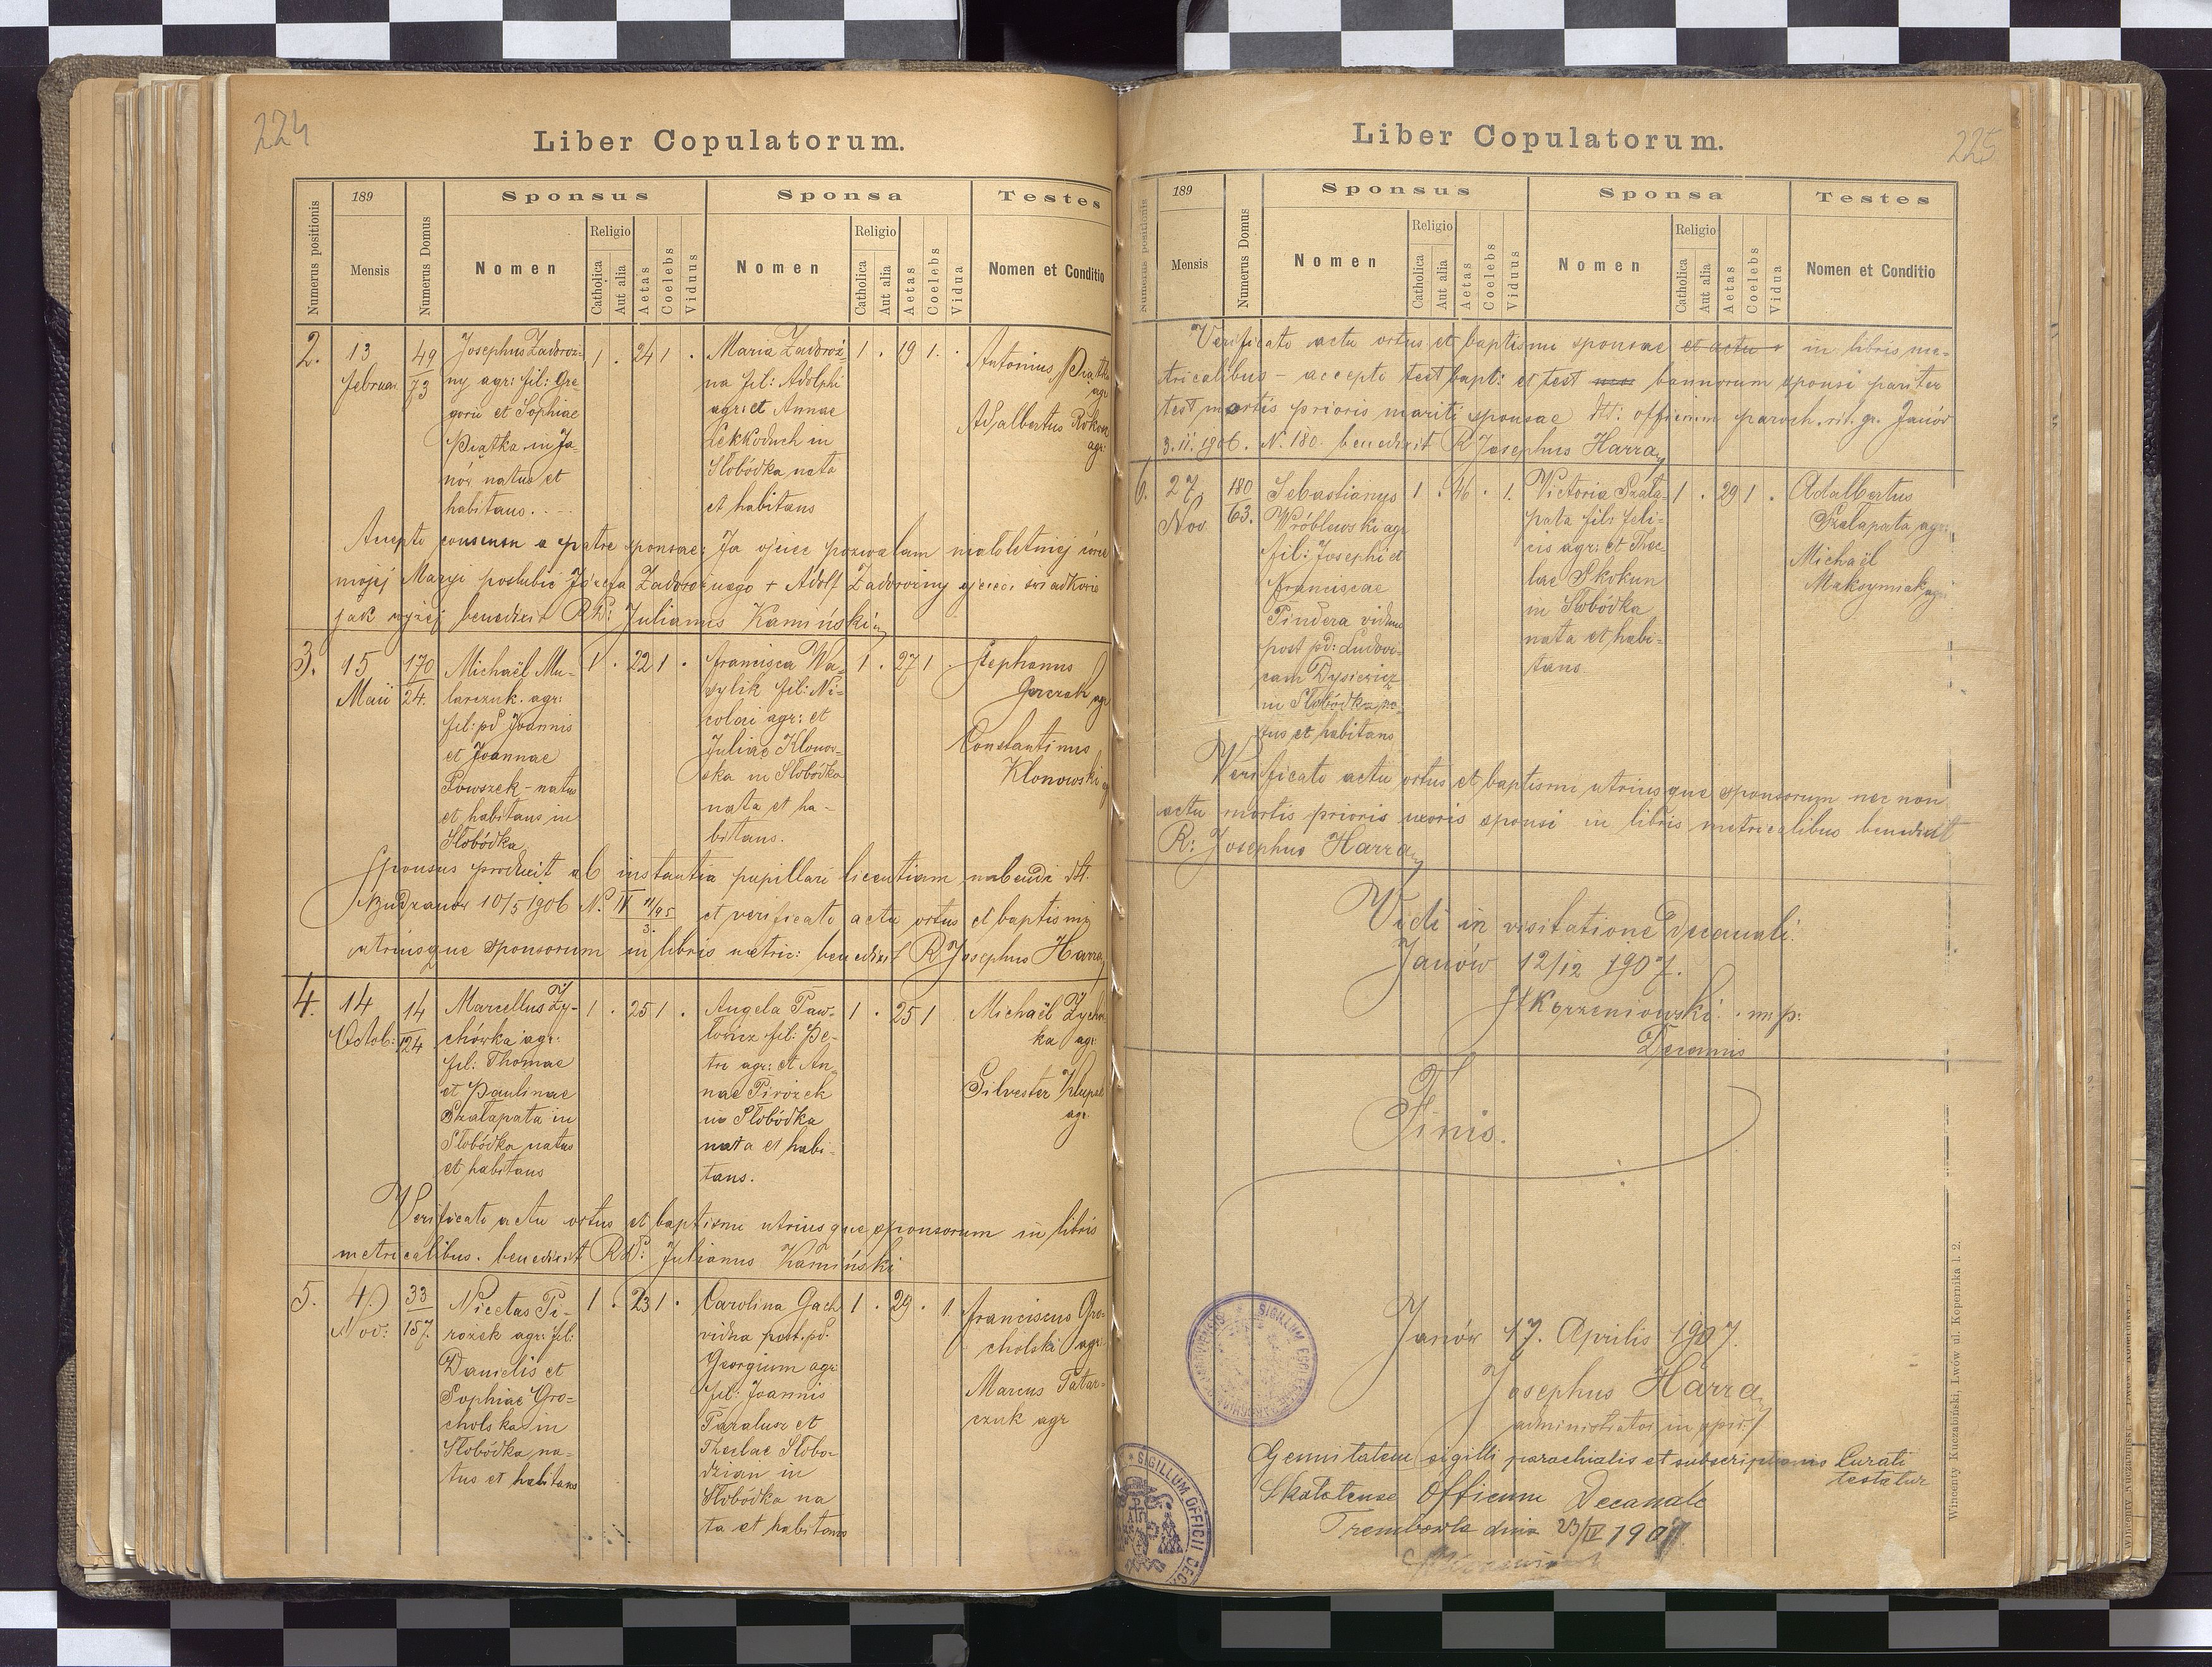 224
Liber Copulatorum.
Numerus positionis
189
Mensis
Numerus Domus
Sponsus
Nomen
Religio
Catholica
Aut alia
Aetas
Coelebs
Viduus
Sponsa
Nomen
Religio
Catholica
Aut alia
Aetas
Coelebs
Vidua
Testes
Nomen et Conditio
2.
13
februar.
49
73
Josephus Zadoroż-
ny agr: fil: Gre-
gorii et Sophiae
Piątka in Ja-
nów natus et
habitans.
1 . 24 1 .
Maria Zadoroż-
na fil: Adolphi
agr: et Annae
Lekkoduch in
Słobódka nata
et habitans
1 . 19 1 .
Antonius Piątka
agr
Adalbertus
agr:
Accepto consensu a patre sponsae: Ja ojciec pozwalam małoletniej córce
mojej Maryi poslubić Józefa Zadorożnego + Adolf Zadorożny ojciec, świadkowie
jak wyżej benedixit RD: Julianus Kamiński
3.
15
Maii
170
24.
Michaël Mu-
larczuk. agr:
fil: pd Joannis
et Joannae
Powszek - natus
et habitans in
Słobódka
1 . 22 1 .
Francisca Wa-
sylik fil: Ni-
colai agr: et
Juliae Klonow-
ska in Słobódka
nata et ha-
bitans.
1 . 27 1 .
Stephanus
Gorczak agr
Constantinus
Klonowski
Sponsus producit ab instantia pupillari licentiam nubendi dtt.
Budzanów 10/5 1906 N. IV 11/95
3.
et verificato actu ortus et baptismi
utriusque sponsorum in libris metric: benedixit R Josephus Harra
4.
14
Octob:
14
124
Marcellus Zy-
chówka agr:
fil: Thomae
et Paulinae
Szałapata in
Słobódka natus
et habitans
1 . 25 1 .
Angela Paw-
łowicz fil: Pe-
tri agr: et An-
nae Pirożek
in Słobódka
nata et habi-
tans.
1 . 25 1
Michaël Zycho
ka agr:
Silvester
agr.
Verificato actu ortus et baptismi utriusque sponsorum in libris
metricalibus. benedixit RD: Julianus Kamiński
5.
4.
Nov:
33
157.
Nicetas Pi-
rożek agr: fil:
Danielis et
Sophiae Gro-
cholska in
Słobódka na-
tus et habitans
1 . 23 1 .
Carolina Gach
vidua post. pd.
Georgium agr:
fil: Joannis
Taralusz et
Theclae Słobo-
dzian in
Słobódka na
ta et habitans
1 . 29 . 1.
Franciscus Gro-
cholski agr:
Marcus Tatar-
czuk agr
225
Liber Copulatorum.
Numerus positionis
189
Mensis
Numerus Domus
Sponsus
Nomen
Religio
Catholica
Aut alia
Aetas
Coelebs
Viduus
Sponsa
Nomen
Religio
Catholica
Aut alia
Aetas
Coelebs
Vidua
Testes
Nomen et Conditio
Verificato actu ortus et baptismi sponsae et actu in libris me-
tricalibus - accepto test bapt: et test bannorum sponsi pariter
test mortis prioris mariti sponsae dtt: officium paroch. rit. gr. Janów
3.11.1906. N. 180. benedixit R Josephus Harra
6.
27
Nov.
180
63.
Sebastianus
Wróblewski agr
fil: Josephi et
Franciscae
Pindera viduus
post pd: Ludovi-
cam Dysiewicz
in Słobódka na-
tus et habitans
1 . 46 . 1.
Victoria Szała-
pata fil: Feli-
cis agr: et Thec-
lae Skokun
in Słobódka
nata et habi-
tans.
1 . 29 1 .
Adalbertus
Szałapata agr:
Michaël
Maksymiak agr
Verificato actu ortus et baptismi utriusque sponsorum nec non
actu mortis prioris uxoris sponsi in libris metricalibus benedixit
R: Josephus Harra
Vidi in visitatione Decanali.
Janów 12/12 1907.
Korzeniowski. mp:
Decanus
Finis.
Janów 17. Aprilis 1907.
Josephus Harra
administrator in spir.
Genuitatem sigilli parochialis et subscriptionis Curati
testatur
Skalatense Officium Decanale
Trembowla dnia 23/IV 1907
SIGILLUM OFFICII
Wincenty Kuczabiński, Lwów ul. Kopernika l. 2.